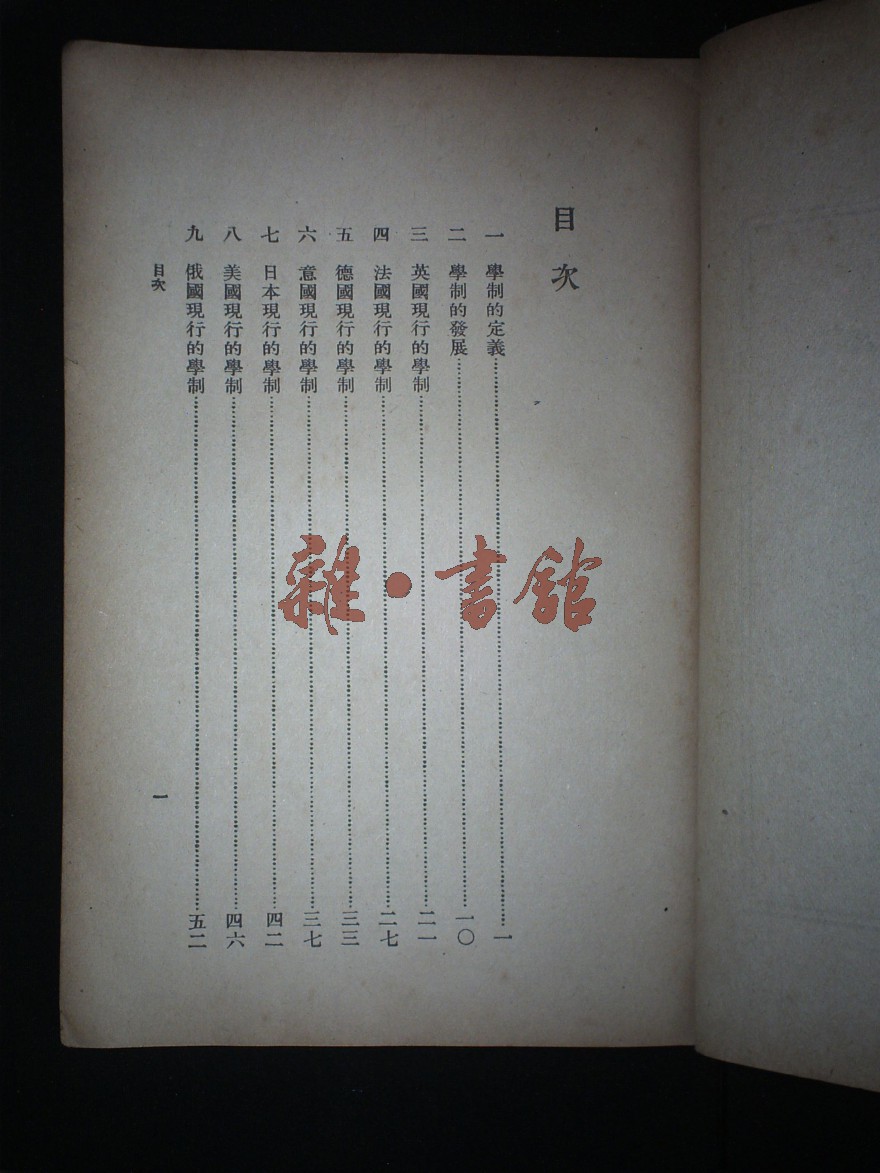 目次
一 學制的定義……一
二 學制的發展……一〇
三 英國現行的學制……二一
四 法國現行的學制……二七
五 德國現行的學制……三三
六 意國現行的學制……三七
七 日本現行的學制……四二
八 美國現行的學制……四六
九 俄國現行的學制……五二
目次 一
雜·書館